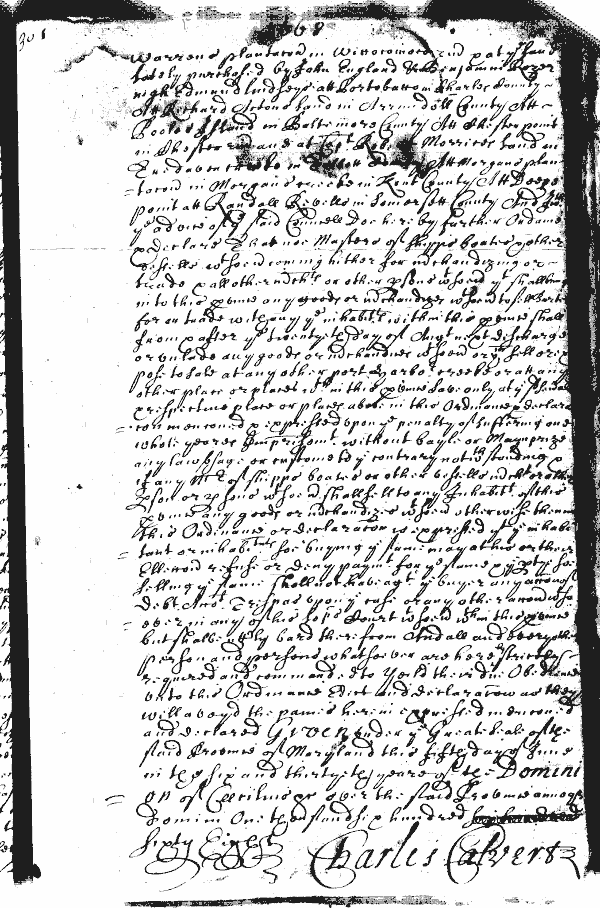 308
Warrens plantacon in Wiccocomoco and pat yt land
lately purchased by John England & Benjamin Rozer
nigh Edmund Lindseys att Portobattoo in Charles County
Att Richard Actons land in Arrundell County Att
Pooles Island in Baltimore County Att Chester point
in Chester and at Morrices land in
in Talbott County Att Morgans plan
tacon in Morgans creeke in Kent County Att Deepe
point att Randall Revells in Somersett County And
ye advice of ye said Councell Doe hereby further Ordaine
& declare That noe Masters of Shipps boates or other
Vessells whsoev coming hither for mchandizing or
trade & all other mchts or other psons whsoev yt shall bring
into this pvince any goods or mchandizes whsoev to sell barter
for or trade with any ye inhabitts within this pvince shall
from & after ye twentyeth day of Augt next discharge
or unlade any goods or mchandizes whsoev or ym sell or ex
pose to sale at any other port harbor creeke or att any
other place or places wthin this pvince save only at ye
prspective place or places above in this Ordinance & declaracon
menconed & expressed upon ye penalty of suffering one
whole yeares Imprisonmt without bayle or Maynprize
any law usage or custome to ye contrary notwthstanding &
if any of shipps boates or other vessells mcht or other
pson or psons whsoev shall sell to any Inhabitt of this
pvince any goods or mchandizes whsoev otherwise then
this Ordinance or declaracon is expressed yt ye inhabi
tant or inhabitants soe buying ye same may at his or their
Elleccon refuse or deny paymt for ye same & ye pty soe
selling ye same shall not have agt ye buyer any accon of
debt Accon Trespas upon ye case or any other accon whso
ever in any of this Lops Court whsoev wthin this pvince
but shall be utterly bard therefrom And all and every other
person and persons whatsoever are hereby strictly
required and commanded to yeild their due Obedience
unto this Ordinance Edict and declaracon as they
will avoyd the paines herein expressed menconed
and declared Given under ye Greate seale of the
said Province of Maryland this fifth day of June
in the six and thirtyeth yeare of the Domini
on of Cecilius &c over the said Province annoq
Domini One thousand six hundred
Sixty Eight
Charles Calvert